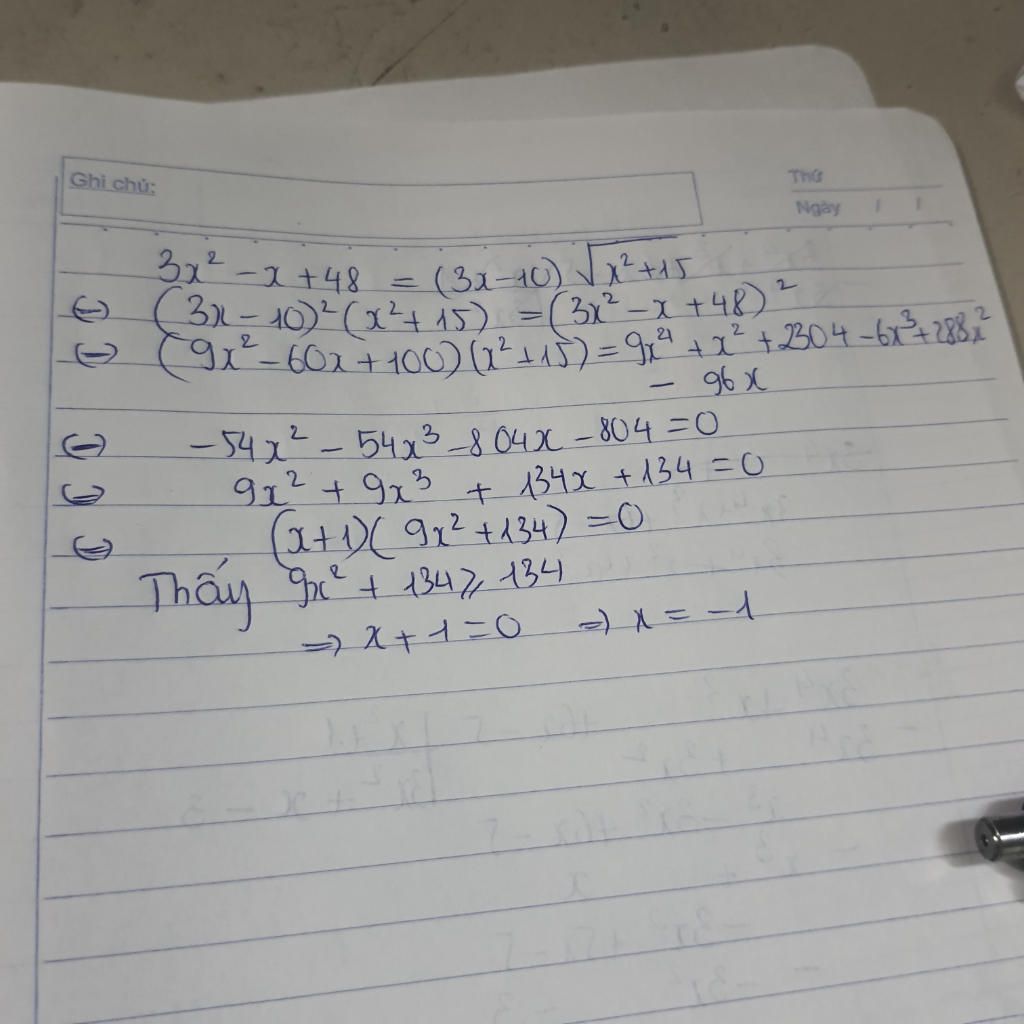 Ghi chú:
Thứ
Ngày / /
3x² - x + 48 = (3x - 10) √x² + 15
⇔ (3x - 10)² (x² + 15) = (3x² - x + 48)²
⇔ (9x² - 60x + 100)(x² + 15) = 9x⁴ + x² + 2304 - 6x³ + 288x²
- 96x
⇔ -54x² - 54x³ - 804x - 804 = 0
⇔ 9x² + 9x³ + 134x + 134 = 0
⇔ (x + 1)(9x² + 134) = 0
Thấy 9x² + 134 ⩾ 134
⇒ x + 1 = 0 ⇒ x = -1